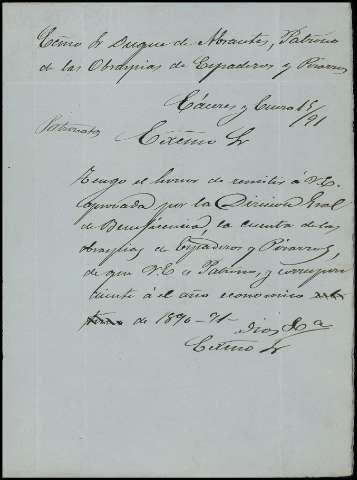 Exmo Sr Duque de Abrantes, Patrono
de las Obrapias de Espaderos y Pizarros
Cáceres y Enero 15/91
Patronatos
Excmo Sr
Tengo el honor de remitir á V.E.
aprovada por la Dirección Gral
de Beneficencia, la cuenta de las
obrapias de Espaderos y Pizarros,
de que V.E. es Patrono, y correspon
diente á el año economico
de 1890-91-
Dios &a
Excmo Sr